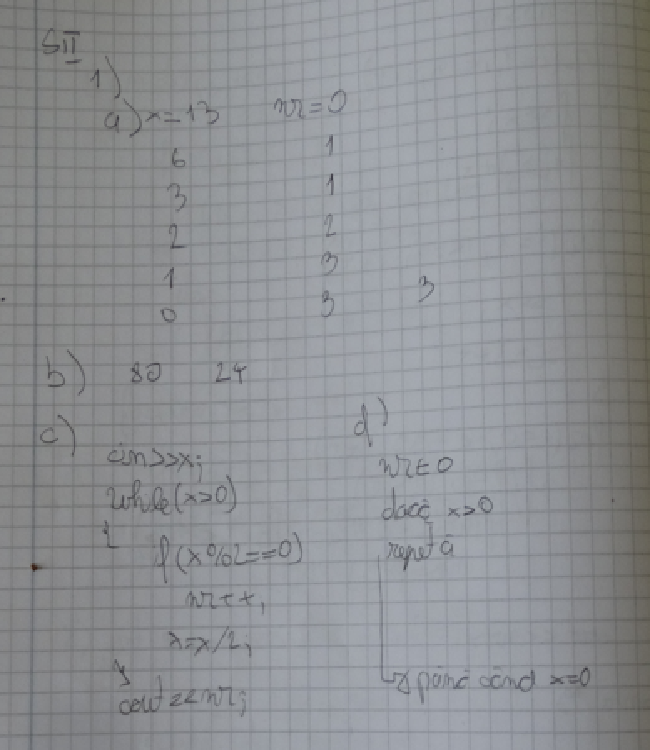 SII
1)
a) x=13 nr=0
6 1
3 1
2 2
1 3
0 3 3
b) 80 24
c)
cin>>x;
while(x>0)
{
if(x%2==0)
nr++;
x=x/2;
}
cout<<nr;
d)
nr←0
dacă x>0
repetă
până când x=0